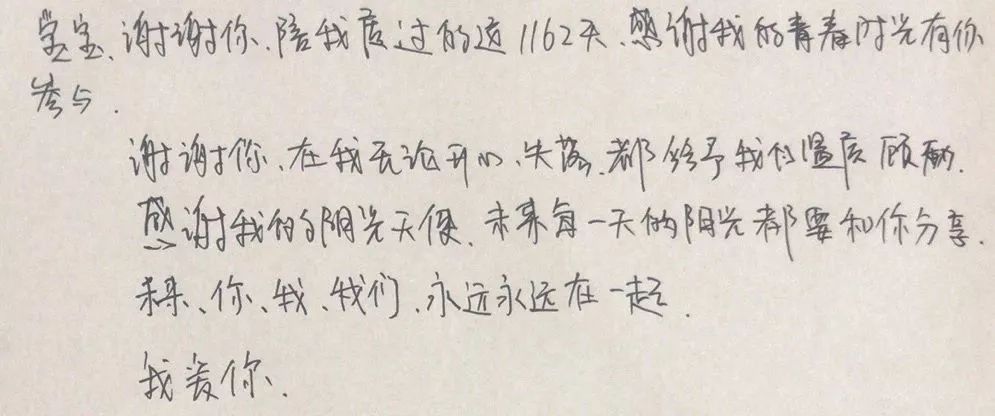 宝宝、谢谢你、陪我度过的这1162天、感谢我的青春时光有你
参与.
谢谢你、在我无论开心、失落、都给予我的温度
感谢我的阳光天使、未来每一天的阳光都要和你分享.
未来、你、我、我们、永远永远在一起.
我爱你、